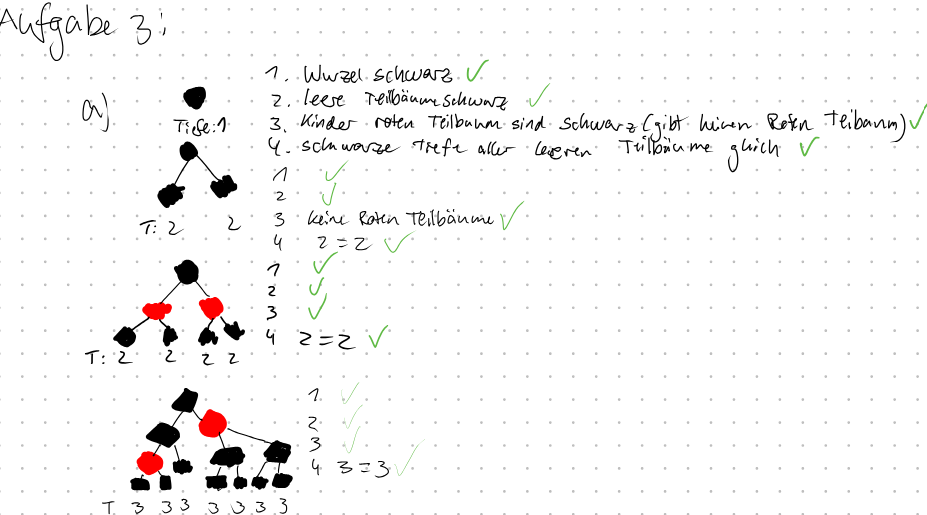 Aufgabe 3:
a)
1. Wurzel schwarz ✓
2. leere Teilbäume schwarz ✓
3. Kinder roten Teilbaum sind schwarz (gibt keinen Roten Teibaum) ✓
Tiefe: 1
4. schwarze Tiefe aller leeren Teilbäume gleich ✓
1 ✓
2 ✓
T: 2 2
3 keine Roten Teilbäume ✓
4 2 = 2 ✓
1 ✓
2 ✓
3 ✓
4 2 = 2 ✓
T: 2 2 2 2
1 ✓
2 ✓
3 ✓
4 3 = 3 ✓
T 3 3 3 3 3 3 3